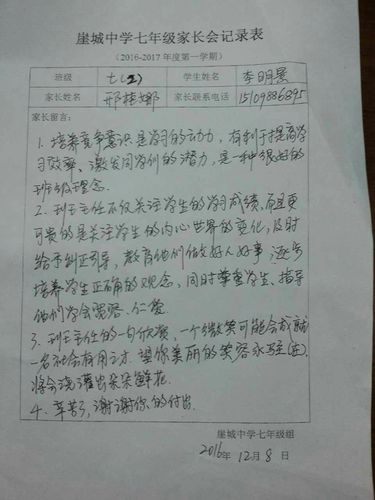 崖城中学七年级家长会记录表
（2016-2017 年度第一学期）
班级 七(2) 学生姓名 李明景
家长姓名 邢桂娜 家长联系电话 15109886895
家长留言：
1. 培养竞争意识是学习的动力，有利于提高学
习效率、激发同学们的潜力，是一种很好的
班级理念。
2. 班主任不仅关注学生的学习成绩，而且更
可贵的是关注学生的内心世界的变化，及时
给予纠正引导，教育他们做好人好事，逐步
培养学生正确的观念，同时尊重学生、指导
他们学会宽容、仁爱。
3. 班主任的一句欣赏，一个微笑可能会成就
一名社会有用之才. 望你美丽的笑容永驻(在)
将会浇灌出朵朵鲜花.
4、辛苦了，谢谢你的付出.
崖城中学七年级组
2016年 12月 8日